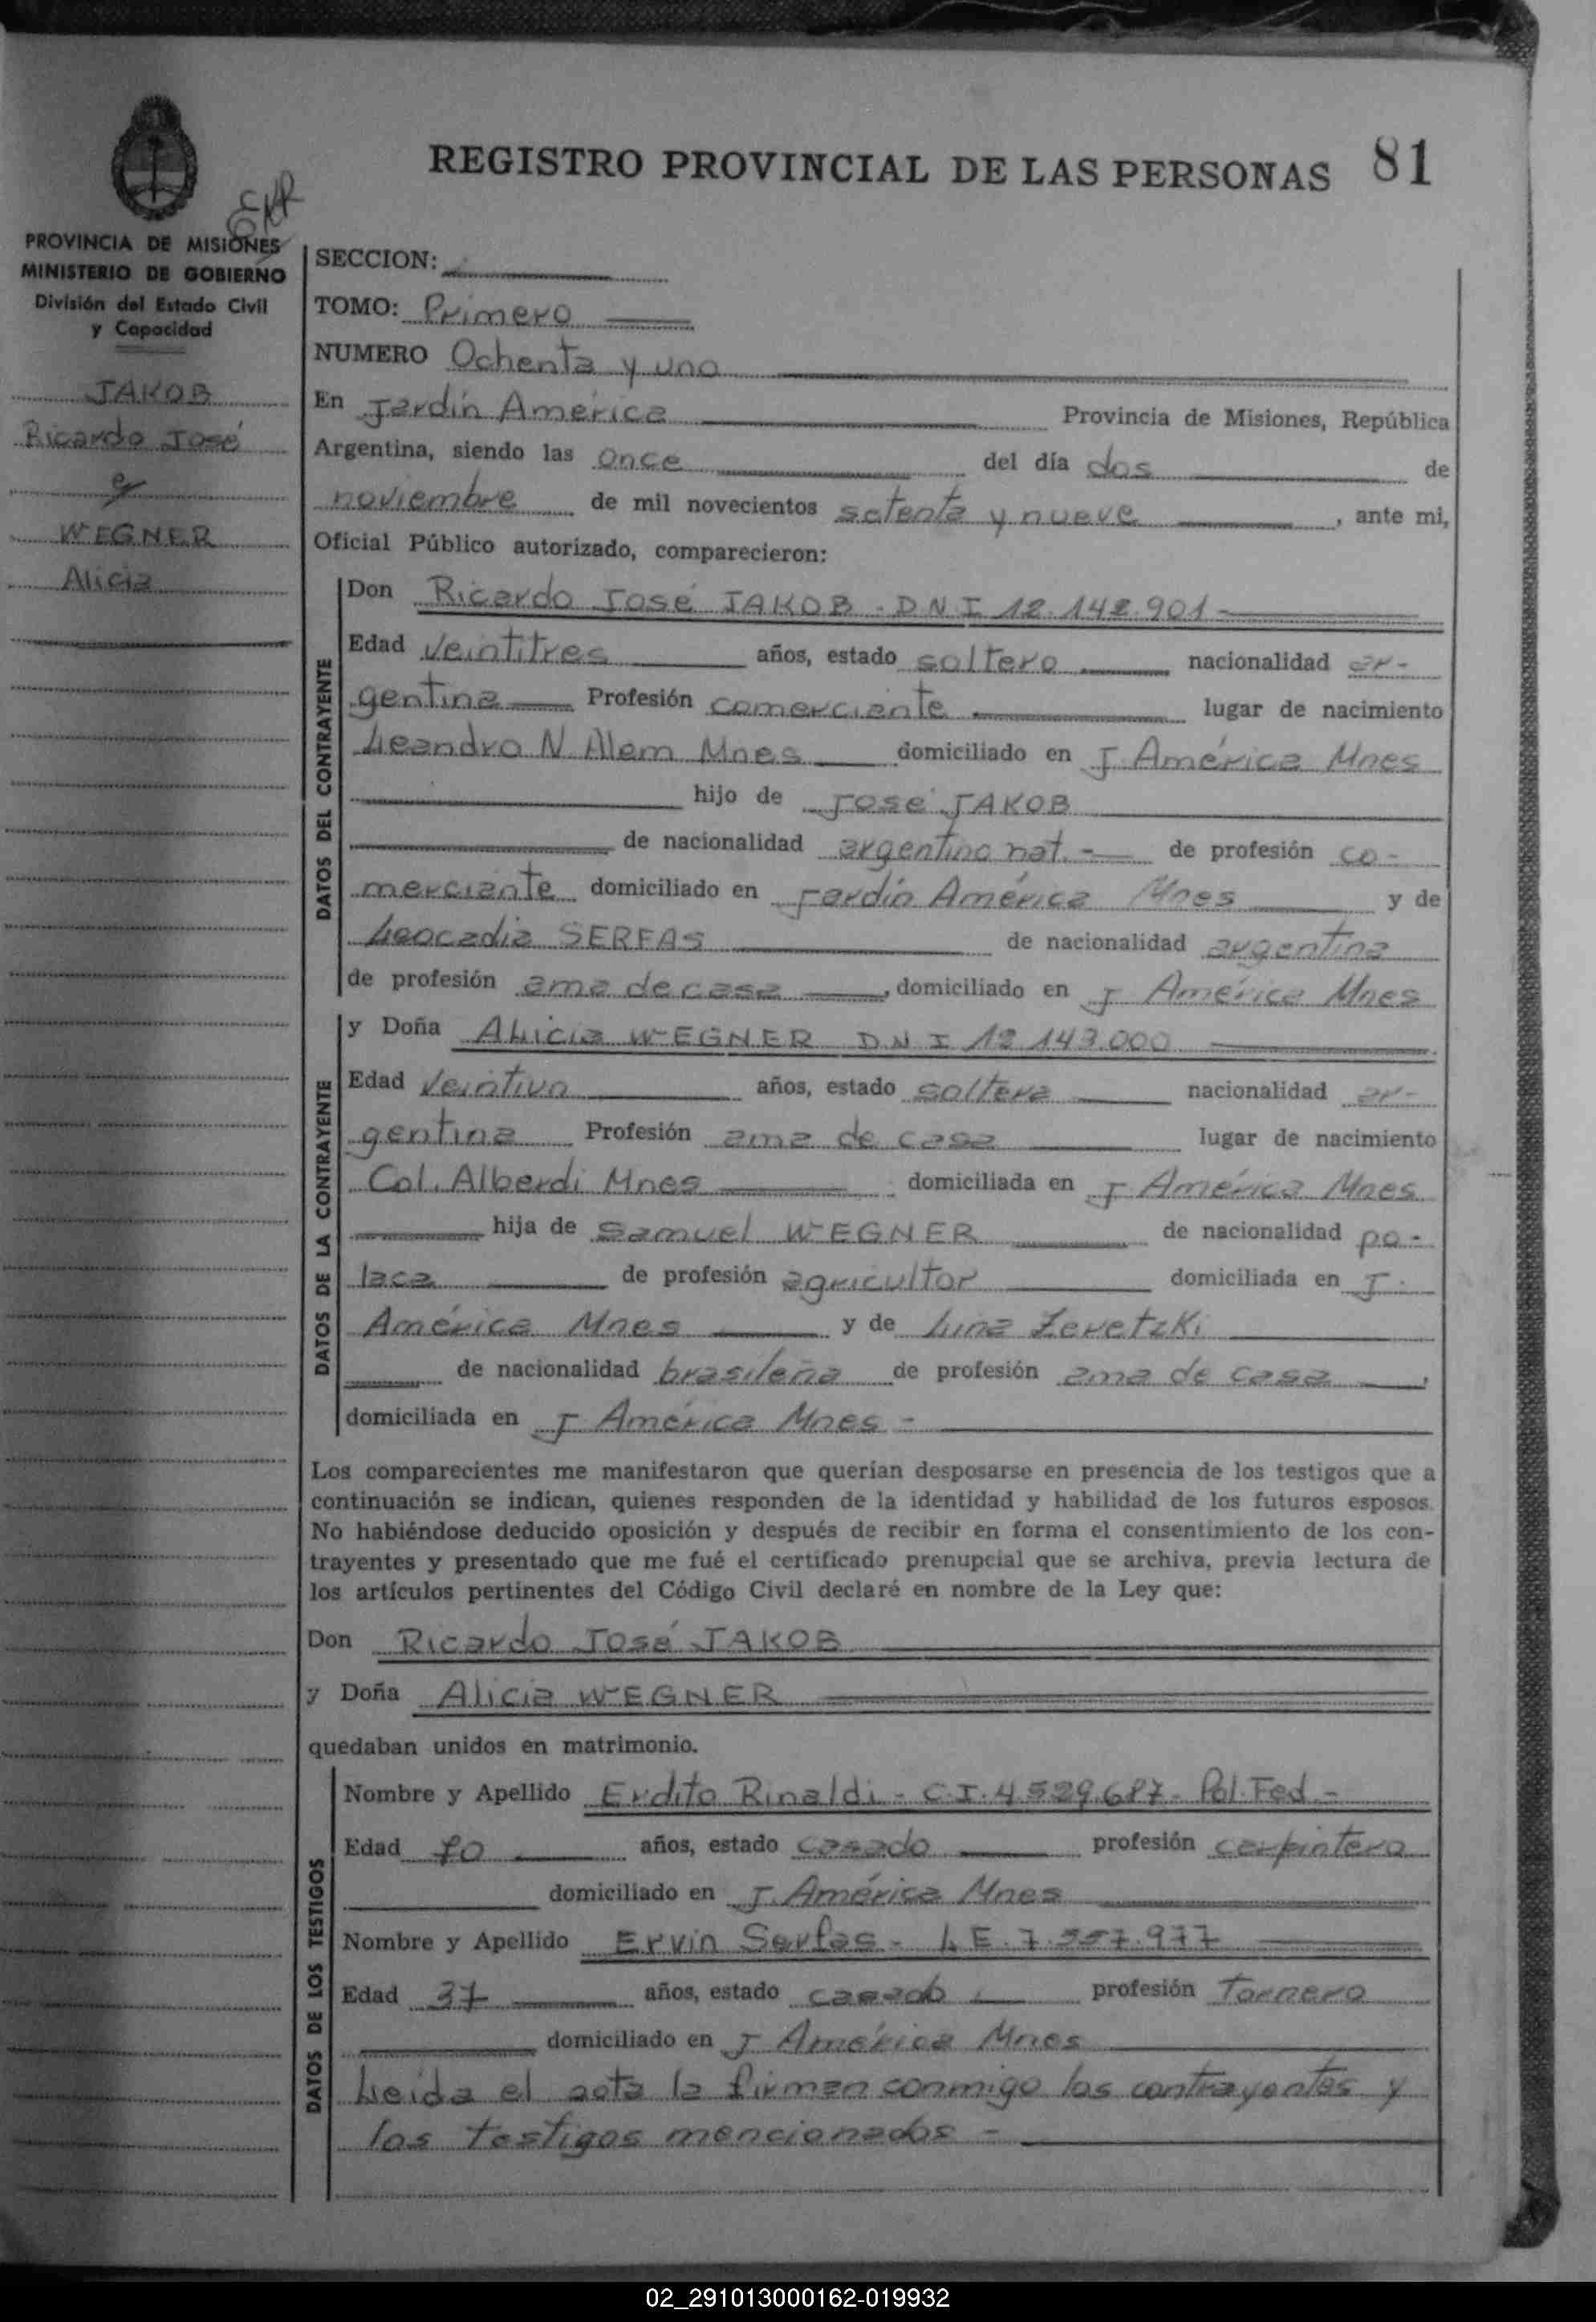 REGISTRO PROVINCIAL DE LAS PERSONAS 81
PROVINCIA DE MISIONES
MINISTERIO DE GOBIERNO
División del Estado Civil
y Capacidad
JAKOB
Ricardo José
y
WEGNER
Alicia
SECCION:
TOMO: Primero
NUMERO Ochenta y uno
En Jardín América Provincia de Misiones, República
Argentina, siendo las once del día dos de
noviembre de mil novecientos setenta y nueve, ante mi,
Oficial Público autorizado, comparecieron:
DATOS DEL CONTRAYENTE
Don Ricardo José JAKOB - DNI 12.142.901-
Edad veintitres años, estado soltero nacionalidad ar-
gentina Profesión comerciante lugar de nacimiento
Leandro N Alem Mnes domiciliado en J América Mnes
hijo de José JAKOB
de nacionalidad argentino nat. - de profesión co-
merciante domiciliado en Jardín América Mnes y de
Leocadia SERFAS de nacionalidad argentina
de profesión ama de casa, domiciliado en J América Mnes
DATOS DE LA CONTRAYENTE
y Doña Alicia WEGNER DNI 12 143.000
Edad Veintiun años, estado soltera nacionalidad ar-
gentina Profesión ama de casa lugar de nacimiento
Col. Alberdi Mnes domiciliada en J América Mnes
hija de Samuel WEGNER de nacionalidad po-
laca de profesión agricultor domiciliada en J.
América Mnes y de Lina Zeretzki
de nacionalidad brasileña de profesión ama de casa,
domiciliada en J América Mnes -
Los comparecientes me manifestaron que querían desposarse en presencia de los testigos que a
continuación se indican, quienes responden de la identidad y habilidad de los futuros esposos.
No habiéndose deducido oposición y después de recibir en forma el consentimiento de los con-
trayentes y presentado que me fué el certificado prenupcial que se archiva, previa lectura de
los artículos pertinentes del Código Civil declaré en nombre de la Ley que:
Don Ricardo José JAKOB
y Doña Alicia WEGNER
quedaban unidos en matrimonio.
DATOS DE LOS TESTIGOS
Nombre y Apellido Erdito Rinaldi - C.I. 4.529.687- Pol. Fed -
Edad años, estado casado profesión carpintero
domiciliado en J. América Mnes
Nombre y Apellido Ervin Serfas - L E. 7.557.977
Edad 37 años, estado casado profesión Tornero
domiciliado en J América Mnes
Leida el acta la firman conmigo los contrayentes y
los testigos mencionados -
02_291013000162-019932